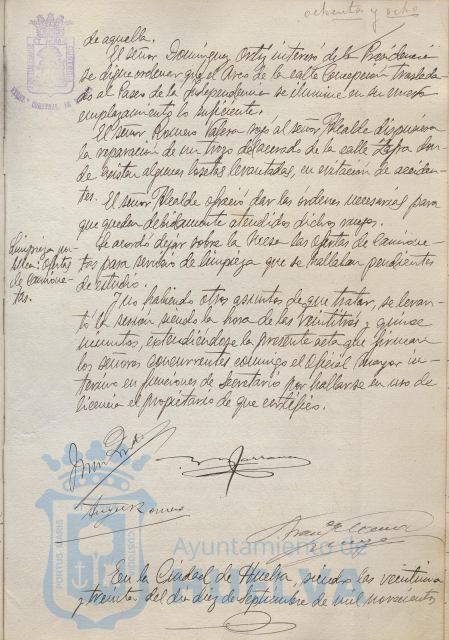 ochenta y ocho
de aquella.
El señor Domínguez Ortiz interesó de la Presidencia
se digne ordenar que el Arco de la calle Concepción traslada-
do al Paseo de la Independencia se ilumine en su nuevo
emplazamiento lo suficiente.
El señor Romero Valera rogó al señor Alcalde dispusiera
la reparación de un trozo del acerado de la calle Zafra don-
de existen algunas losetas levantadas, en evitación de acciden-
tes.
El señor Alcalde ofreció dar las órdenes necesarias para
que queden debidamente atendidos dichos ruegos.
Limpieza pú-
blica: Ofertas
de camione-
tas.
Se acordó dejar sobre la Mesa las ofertas de camione-
tas para servicio de limpieza que se hallaban pendientes
de estudio.
Y no habiendo otros asuntos de que tratar, se levan-
tó la sesión siendo la hora de las veintitrés y quince
minutos, extendiéndose la presente acta que firman
los señores concurrentes conmigo el Oficial Mayor in-
terino en funciones de Secretario por hallarse en uso de
licencia el propietario de que certifico.
PORTUS MARIS
CUSTODIA
Ayuntamiento de
HUELVA
En la Ciudad de Huelva, siendo las veintiuna
y treinta del día diez de Septiembre de mil novecientos